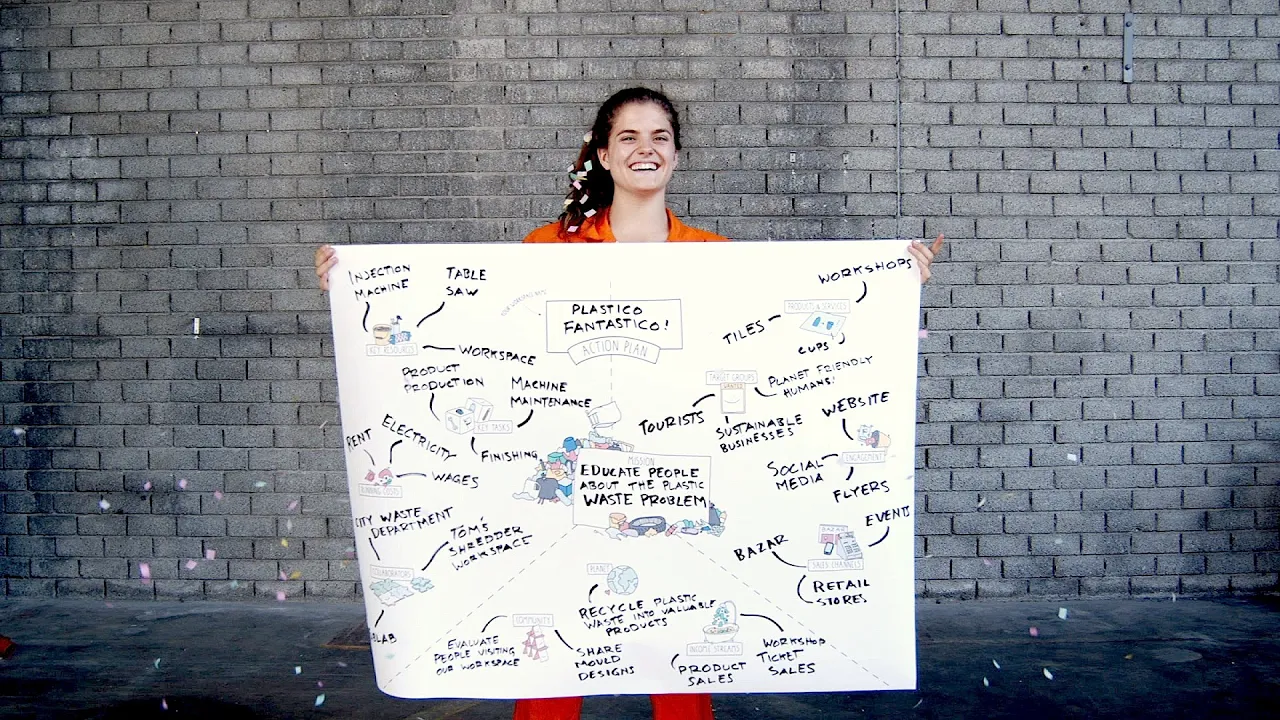 PLASTICO
FANTASTICO!
ACTION PLAN
INJECTION
MACHINE
TABLE
SAW
KEY RESOURCES
WORKSPACE
PRODUCT
PRODUCTION
MACHINE
MAINTENANCE
KEY TASKS
FINISHING
RENT
ELECTRICITY
WAGES
RUNNING COSTS
CITY WASTE
DEPARTMENT
TOM'S
SHREDDER
WORKSPACE
COLLABORATORS
MISSION
EDUCATE PEOPLE
ABOUT THE PLASTIC
WASTE PROBLEM
WORKSHOPS
PRODUCTS & SERVICES
TILES
CUPS
TARGET GROUPS
PLANET FRIENDLY
HUMANS!
TOURISTS
SUSTAINABLE
BUSINESSES
WEBSITE
ENGAGEMENT
SOCIAL
MEDIA
FLYERS
EVENTS
BAZAR
BAZAR
SALES CHANNELS
RETAIL
STORES
PLANET
RECYCLE PLASTIC
WASTE INTO VALUABLE
PRODUCTS
COMMUNITY
EVALUATE
PEOPLE VISITING
OUR WORKSPACE
SHARE
MOULD
DESIGNS
INCOME STREAMS
PRODUCT
SALES
WORKSHOP
TICKET
SALES